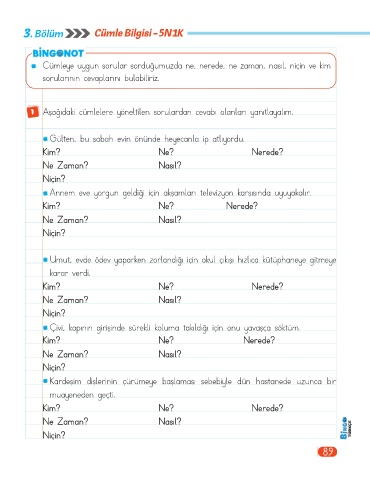 3. Bölüm Cümle Bilgisi - 5N1K
BİNGONOT
Cümleye uygun sorular sorduğumuzda ne, nerede, ne zaman, nasıl, niçin ve kim
sorularının cevaplarını bulabiliriz.
1 Aşağıdaki cümlelere yöneltilen sorulardan cevabı olanları yanıtlayalım.
Gülten, bu sabah evin önünde heyecanla ip atlıyordu.
Kim? Ne? Nerede?
Ne Zaman? Nasıl?
Niçin?
Annem eve yorgun geldiği için akşamları televizyon karşısında uyuyakalır.
Kim? Ne? Nerede?
Ne Zaman? Nasıl?
Niçin?
Umut, evde ödev yaparken zorlandığı için okul çıkışı hızlıca kütüphaneye gitmeye
karar verdi.
Kim? Ne? Nerede?
Ne Zaman? Nasıl?
Niçin?
Çivi, kapının girişinde sürekli koluma takıldığı için onu yavaşça söktüm.
Kim? Ne? Nerede?
Ne Zaman? Nasıl?
Niçin?
Kardeşim dişlerinin çürümeye başlaması sebebiyle dün hastanede uzunca bir
muayeneden geçti.
Kim? Ne? Nerede?
Ne Zaman? Nasıl?
Niçin?
BİNGO
TÜRKÇE
89